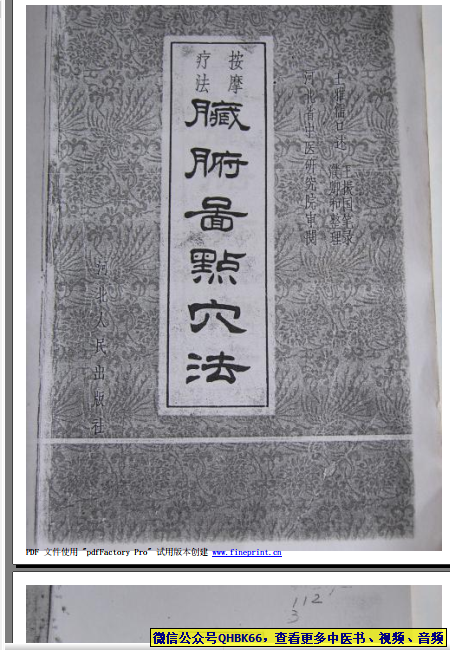 王雅儒口述
王振国笔录
濮卿和整理
河北省中医研究院审阅
按摩
疗法
臟腑啚點穴法
河北人民出版社
PDF 文件使用 "pdfFactory Pro" 试用版本创建 www.fineprint.cn
112
3
微信公众号QHBK66，查看更多中医书、视频、音频